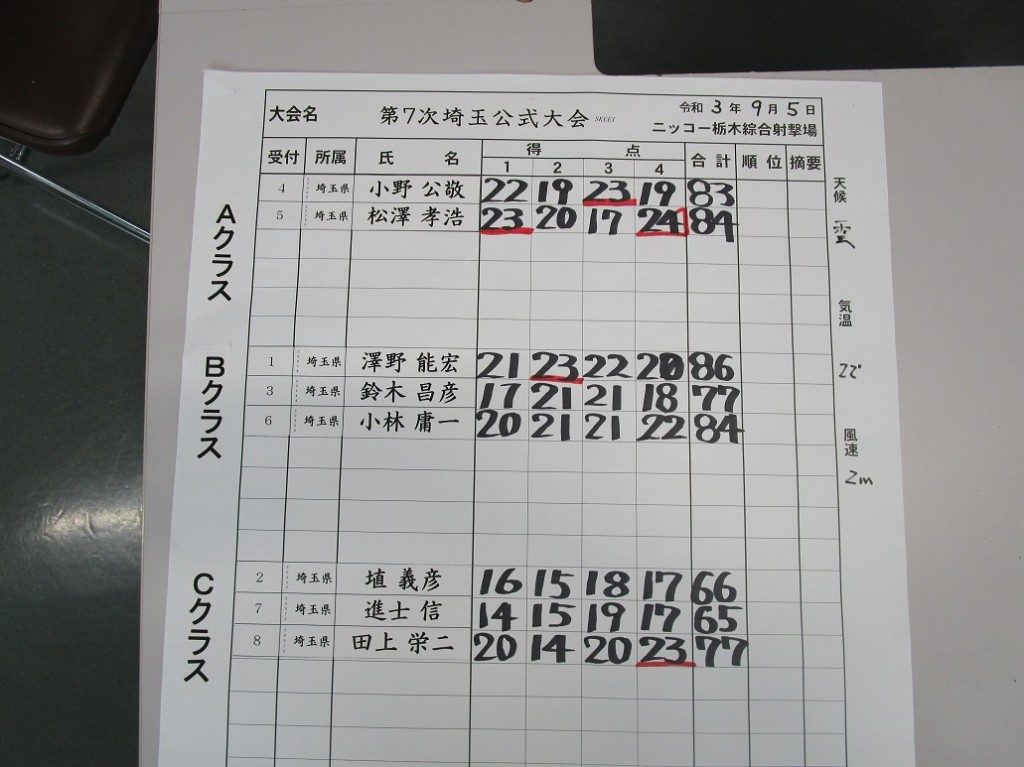 大会名 第7次埼玉公式大会 SKEET 令和 3 年 9 月 5 日
ニッコー栃木綜合射撃場
受付 所属 氏 名 得 点 合計 順位 摘要
1 2 3 4
Aクラス
4 埼玉県 小野 公敬 22 19 23 19 83
5 埼玉県 松澤 孝浩 23 20 17 24 84
Bクラス
1 埼玉県 澤野 能宏 21 23 22 20 86
3 埼玉県 鈴木 昌彦 17 21 21 18 77
6 埼玉県 小林 庸一 20 21 21 22 84
Cクラス
2 埼玉県 埴 義彦 16 15 18 17 66
7 埼玉県 進士 信 14 15 19 17 65
8 埼玉県 田上 栄二 20 14 20 23 77
天候
気温
22°
風速
2m